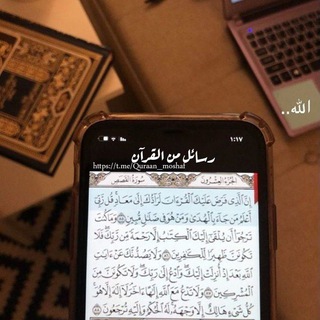 الله..
١:١٧
رسائل من القرآن
https://t.me/Quraan_moshaf
الجزء العشرون
سورة القصص
إن الذي فرض عليك القرءان لرادك إلى معاد قل ربي
أعلم من جاء بالهدى ومن هو في ضلل مبين ٨٥ وما كنت
ترجوا أن يلقى إليك الكتب إلا رحمة من ربك فلا
تكونن ظهيرا للكفرين ٨٦ ولا يصدنك عن ءايت
الله بعد إذ أنزلت إليك وادع إلى ربك ولا تكونن من
المشركين ٨٧ ولا تدع مع الله إلها ءاخر لا إله إلا هو
كل شيء هالك إلا وجهه له الحكم وإليه ترجعون ٨٨